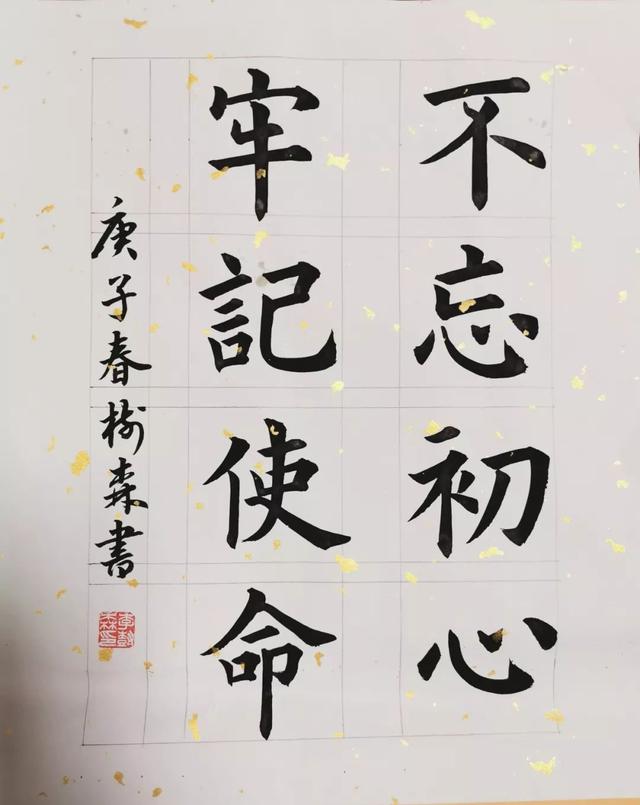 不忘初心
牢記使命
庚子春樹森書